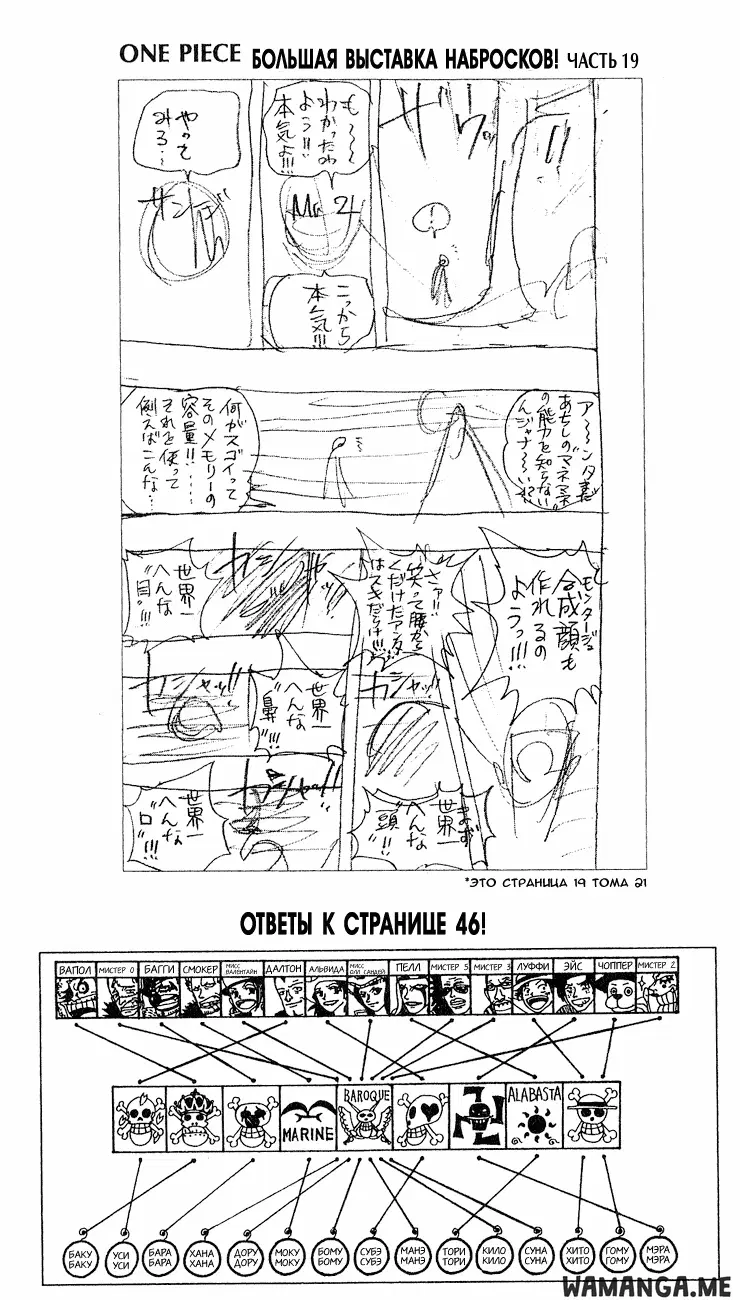 ONE PIECE БОЛЬШАЯ ВЫСТАВКА НАБРОСКОВ! ЧАСТЬ 19
も〜〜
わかったわ
よう!!
本気よ!!!
Mr 2
こっから
本気!!!
やって
みろ…
サンジ
ア〜〜ンタ達
あちしの"マネマネ"
の能力を知らない
んジャナ〜〜い!?
何がスゴイって
そのメモリーの
容量!!……
それを使って
例えばこんな…
モンタージュ
合成顔も
作れるの
ようっ!!!
さァ!!
笑って腰から
くだけたアンタ
はスキだらけ!!!
カシャッ!!
まず
世界一
へんな
"頭"!!
世界一
へんな
"目"!!!
カシャッ!!
世界一
へんな
"鼻"!!!
世界一
へんな
"口"!!!
*ЭТО СТРАНИЦА 19 ТОМА 21
ОТВЕТЫ К СТРАНИЦЕ 46!
ВАПОЛ МИСТЕР 0 БАГГИ СМОКЕР МИСС ВАЛЕНТАЙН ДАЛТОН АЛЬВИДА МИСС ОЛЛ САНДЕЙ ПЕЛЛ МИСТЕР 5 МИСТЕР 3 ЛУФФИ ЭЙС ЧОППЕР МИСТЕР 2
MARINE BAROQUE ALABASTA
БАКУ БАКУ
УСИ УСИ
БАРА БАРА
ХАНА ХАНА
ДОРУ ДОРУ
МОКУ МОКУ
БОМУ БОМУ
СУБЭ СУБЭ
МАНЭ МАНЭ
ТОРИ ТОРИ
КИЛО КИЛО
СУНА СУНА
ХИТО ХИТО
ГОМУ ГОМУ
МЭРА МЭРА
WAMANGA.ME